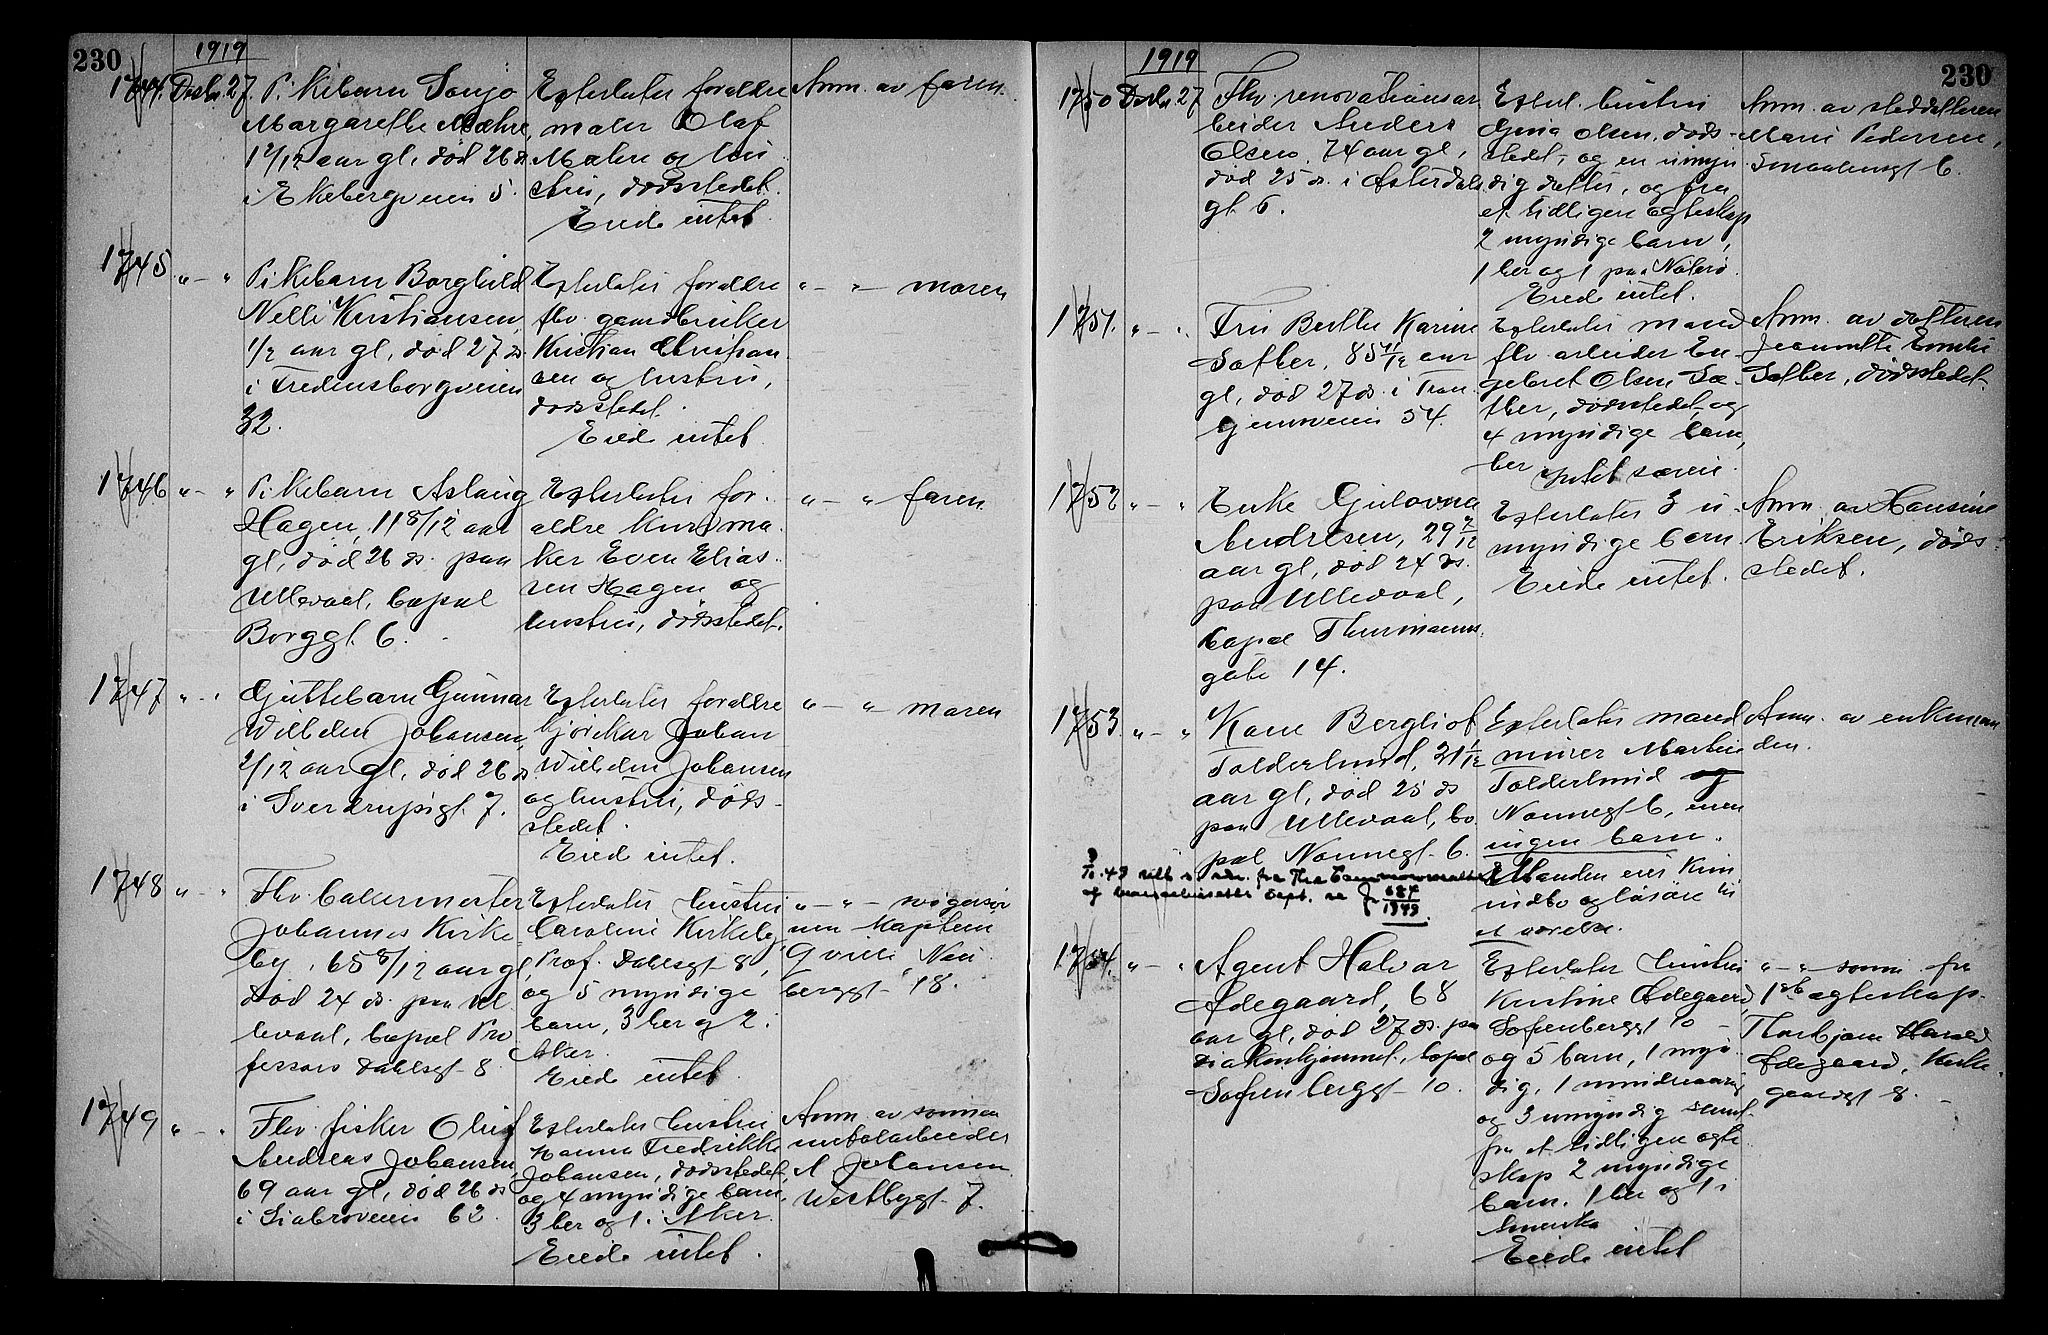 230
1919
1744. Desbr. 27
Pikebarn Sonja
Margarethe Mæhre,
1 2/12 aar gl, død 26 ds
i Ekebergveien 5.
Efterlater forældre
maler Olaf
Mæhre og hu
stru, dødsstedet.
Eiede intet.
Anm. av faren.
1745 " — "
Pikebarn Borghild
Nelli Kristiansen,
1/2 aar gl, død 27 ds
i Fredensborgveien
32.
Efterlater forældre
fhv. gaardbruker
Kristian Christian
sen og hustru,
dødsstedet.
Eiede intet.
" — " — moren
1746 " — "
Pikebarn Aslaug
Hagen, 11 8/12 aar
gl, død 26 ds. paa
Ullevaal, bopæl
Borggt. 6.
Efterlater for-
ældre kurvma-
ker Even Elias-
sen Hagen og
hustru, dødsstedet.
" — " faren.
1747 " — "
Guttebarn Gunnar
Wilhelm Johansen,
2/12 aar gl, død 26 ds
i Sverdrupsgt. 7.
Efterlater forældre
kjørekar Johan
Wilhelm Johansen
og hustru, døds-
stedet.
Eiede intet.
" — " — moren
1748 " — "
Fhv. bakermester
Johannes Kirke
by, 65 8/12 aar gl,
død 24 ds. paa Ul
levaal, bopæl Pro
fessor Dahlsgt 8.
Efterlater hustru
Caroline Kirkeby,
Prof. Dahlsgt 8,
og 5 myndige
barn, 3 her og 2 i
Aker.
Eiede intet.
" — " — svigersøn
nen kaptein
Qville Neu
berggt " 18.
1749 " — "
Fhv. fisker Oluf
Andreas Johansen
69 aar gl, død 26 ds
i Siebroveien 62.
Efterlater hustru
Hanna Fredrikke
Johansen, dødsstedet,
og 4 myndige barn,
3 her og 1 i Aker.
Eiede intet.
Anm. av sønnen
metalarbeider
A Johansen
Westbygt. 7.
230
1919
1750 Desbr. 27
Fhv. renovationsar
beider Anders
Olsen, 74 aar gl,
død 25 ds. i Østerdals
gt. 6.
Efterl. hustru
Gina Olsen, døds-
stedet, og en umyn
dig datter, og fra
et tidligere egteskap
2 myndige barn,
1 her og 1 paa Nøterø.
Eiede intet.
Anm. av steddatteren
Marie Pedersen,
Smaalensgt 6.
1751. " — "
Fru Berthe Karine
Sæther, 85 11/12 aar
gl, død 27 ds. i Tran
gjennveien 54.
Efterlater mand
fhv. arbeider En-
gebret Olsen Sæ-
ther, dødsstedet, og
4 myndige barn,
her Intet særeie.
Anm. av datteren
Jeanette Emilie
Sæther, dødsstedet.
1752 " — "
Enke Gulovna
Andresen, 29 7/12
aar gl, død 24 ds.
paa Ullevaal,
bopæl Thurmanns
gate 14.
Efterlater 3 u-
myndige barn
Eiede intet.
Anm. av Hansine
Eriksen, døds-
stedet.
1753. " — "
Kone Bergliot
Tolderlund, 21 1/12
aar gl, død 25 ds
paa Ullevaal, bo
pæl Nonnegt. 6.
Efterlater mand
murer Martin
Tolderlund og
Nonnegt 6, men
ingen barn.
Manden eier kun
indbo og løsøre til
et værelse.
Anm. av enkeman
den.
fra
dept. se J 684
1949.
1754. " — "
Agent Halvar
Ødegaard, 68
aar gl, død 27 ds. paa
Diakonhjemmet, bopæl
Sofienberggt 10.
Efterlater hustru
Kristine Ødegaard,
Sofienberggt 10 —
og 5 barn, 1 myn
dig, 1 mindreaarig
og 3 umyndig samt
fra et tidligere egte
skap 2 myndige
barn, 1 her og 1 i
Amerika
Eiede intet
" — " sønn fra
1ste egteskap
Thorbjørn Harald
Ødegaard, Kirke-
gaardsgt 8. —